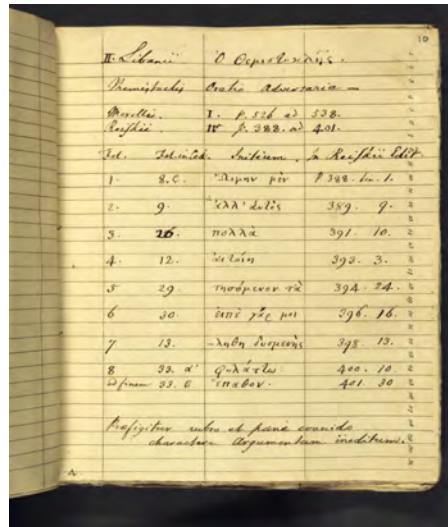 10
II. Libanii Ὁ Θεμιστοκλῆς.
Themistoclis Oratio Adversaria —
Morellii I. p. 526 ad 538.
Reiskii IV p. 388. ad 401.
Fol. Initium. In Reiskii Edit.
1. 8. C. Ὤιμην μὲν P 388. lin. 1.
2. 9. ἀλλ' αὐτὸς 389. 9.
3. 26. πολλὰ 391. 10.
4. 12. 393. 3.
5 29. τησόμενον τὰ 394. 24.
6 30. εἰπὲ γάρ μοι 396. 16.
7 13. -λήθη δυσμενὴς 398. 13.
8 33. a' φυλάττω 400. 10.
ad finem 33. ἔπαθον. 401. 30
Praefigitur rubro et paene evanido
charactere Argumentum ineditum.